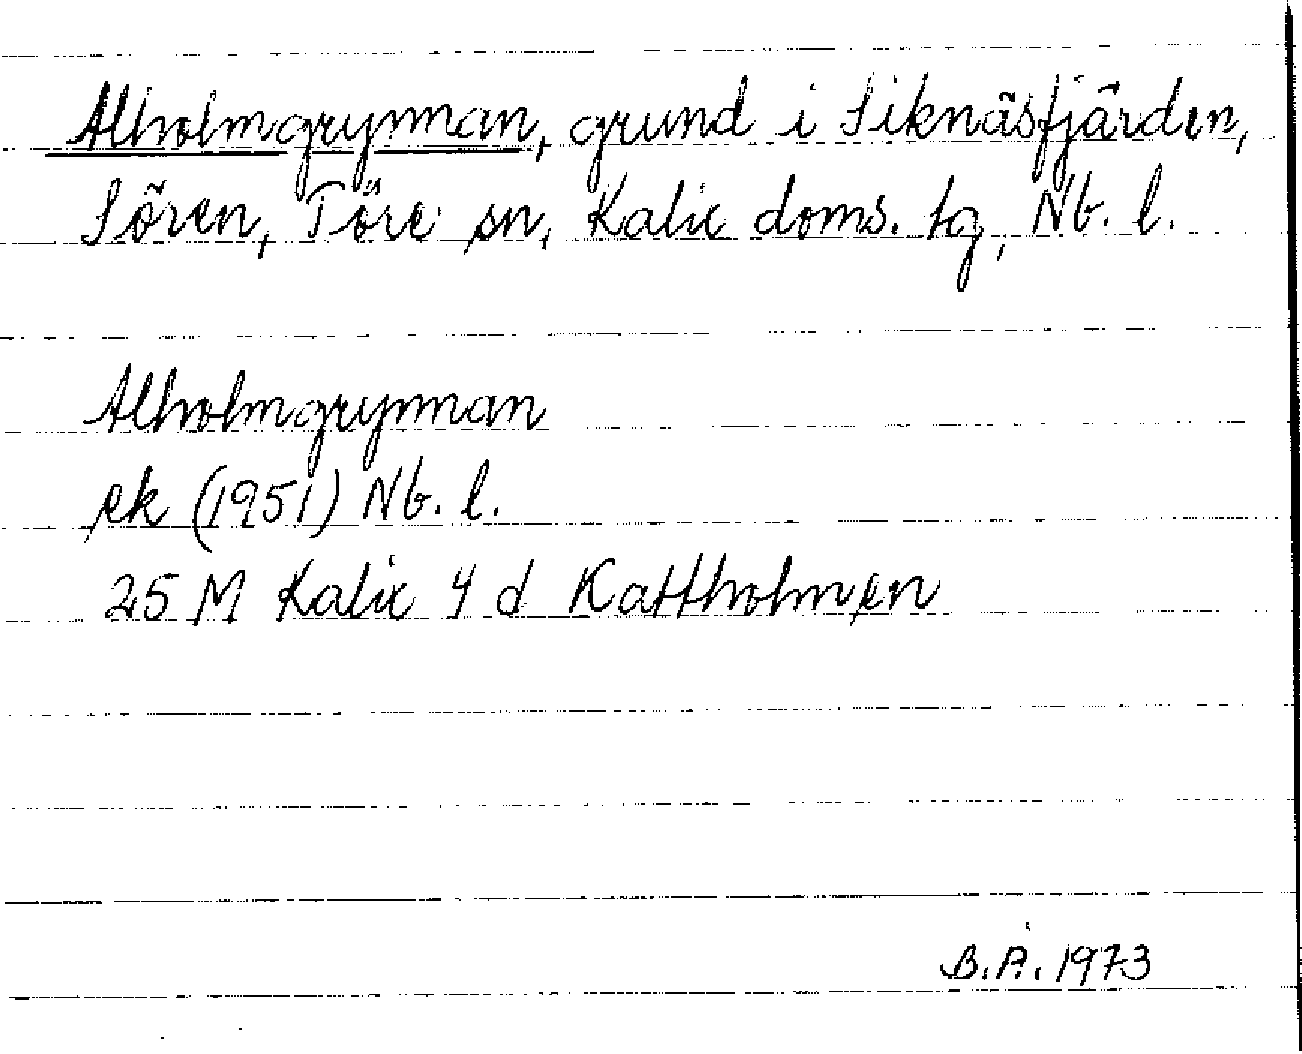 Alholmgrynnan, grund i Siknäsfjärden,
Sören, Töre sn, Kalix doms. tg, Nb. l.
Alholmgrynnan
ek (1951) Nb. l.
25 M Kalix 4 d Kattholmen
B.Å. 1973